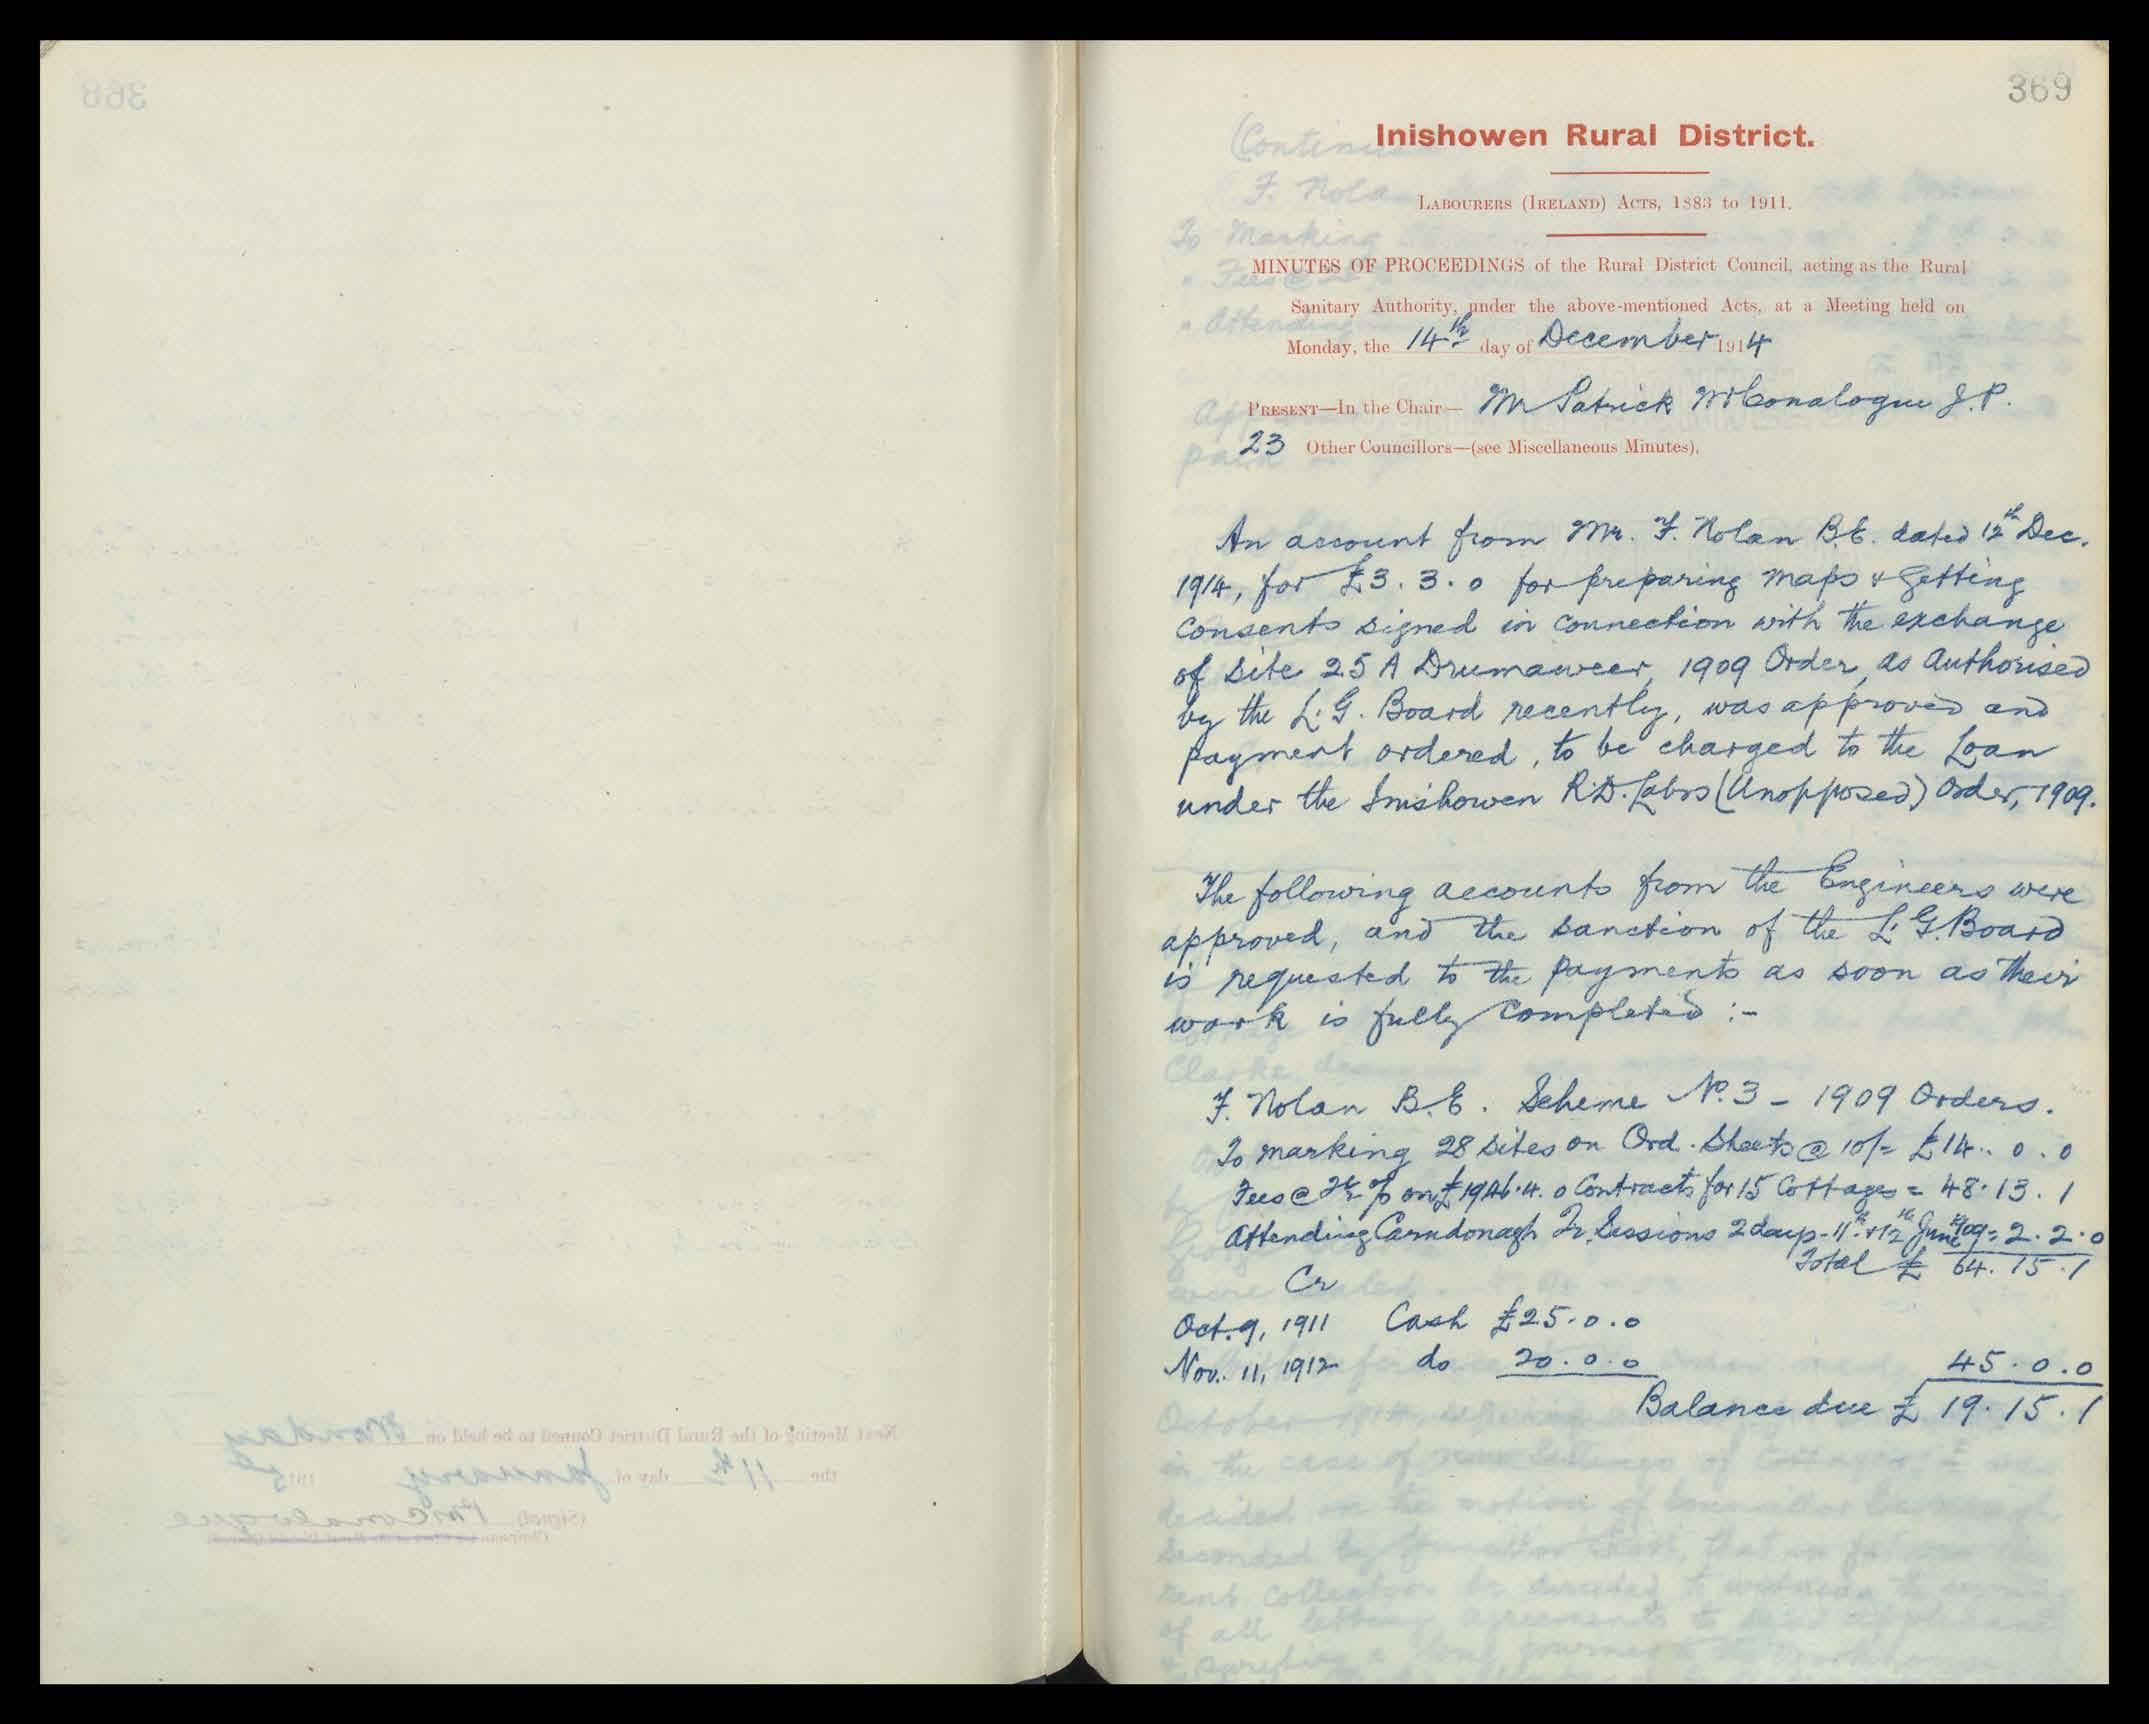 369
Inishowen Rural District.
LABOURERS (IRELAND) ACTS, 1883 to 1911.
MINUTES OF PROCEEDINGS of the Rural District Council, acting as the Rural
Sanitary Authority, under the above-mentioned Acts, at a Meeting held on
Monday, the 14th day of December 1914
PRESENT—In the Chair— Mr Patrick McConalogue J.P.
23 Other Councillors—(see Miscellaneous Minutes).
An account from Mr. F. Nolan B.E. dated 12th Dec.
1914, for £3. 3. 0 for preparing maps & getting
consents signed in connection with the exchange
of site 25 A Drumaweer, 1909 Order, as authorised
by the L. G. Board recently, was approved and
payment ordered, to be charged to the Loan
under the Inishowen R.D. Labrs (Unopposed) Order, 1909.
The following accounts from the Engineers were
approved, and the sanction of the L. G. Board
is requested to the payments as soon as their
work is fully completed :-
F. Nolan B.E. Scheme No. 3 - 1909 Orders.
To marking 28 sites on Ord. Sheets @ 10/= £14. 0. 0
Fees @ 2½ % on £1946.4.0 Contracts for 15 Cottages = 48. 13. 1
Attending Carndonagh Qr. Sessions 2 days - 11th & 12th June 1909 = 2. 2. 0
Total £ 64. 15. 1
Cr
Oct. 9, 1911 Cash £25. 0. 0
Nov. 11, 1912 do 20. 0. 0 45. 0. 0
Balance due £ 19. 15. 1